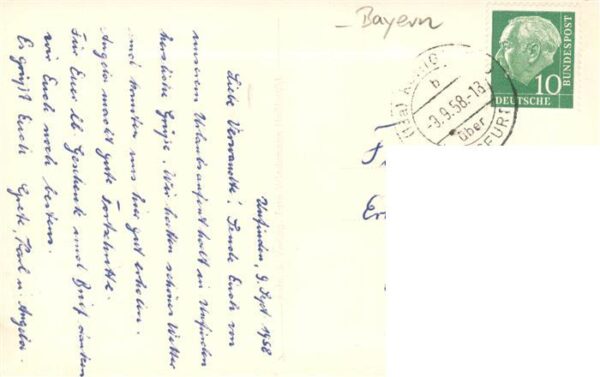 Bayern
BUNDESPOST
DEUTSCHE
10
b
-9.9.58.-18
über
Unfinden, 9. Sept 1958
Liebe Verwandte! Sende Euch von
unserem Urlaubsaufenthalt in Unfinden
herzliche Grüße. Wir hatten schönes Wetter
und konnten uns hier gut erholen.
Angela macht gute Fortschritte.
Für Euer lb Geschenk und Brief danken
wir Euch noch bestens.
Es grüßt Euch Grete, Karl u. Angela.